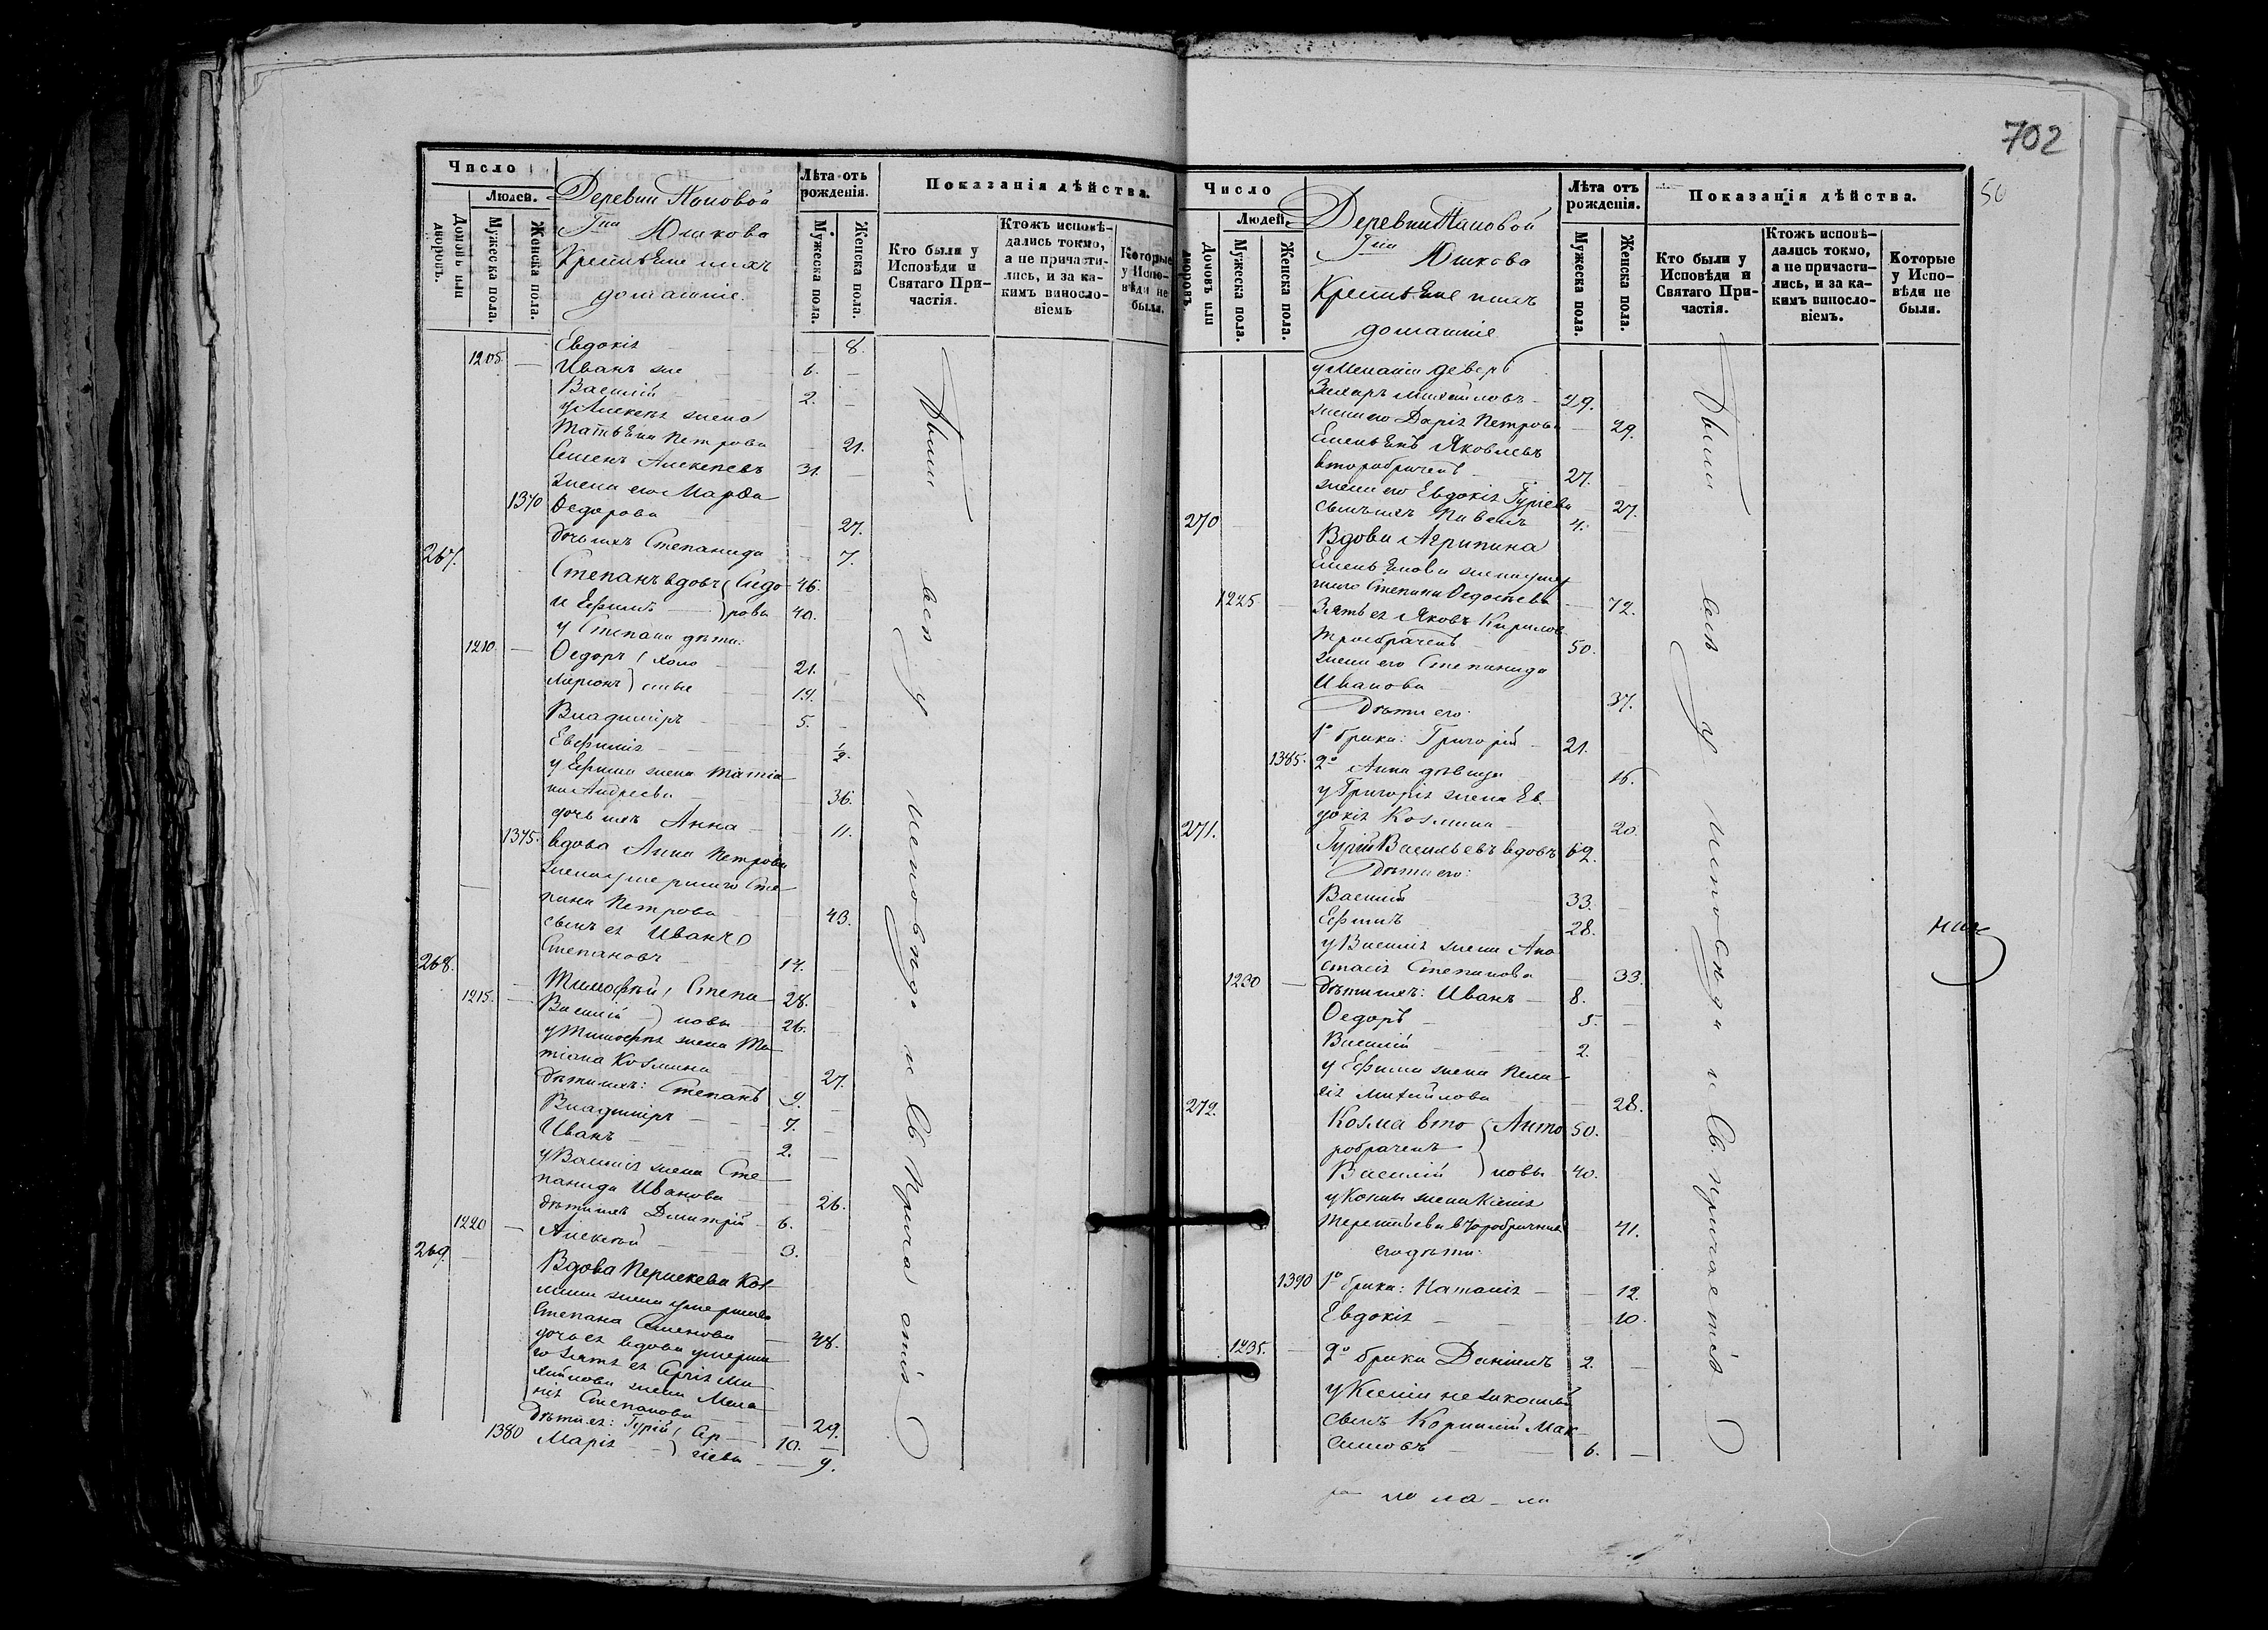 702
50
Число
Людей.
Домовъ или дворовъ.
Мужеска пола.
Женска пола.
Деревни Паповой
Гна Юшкова
Крестьяне и ихъ
домашніе.
Лѣта отъ рожденія.
Мужеска пола.
Женска пола.
Показанія дѣйства.
Кто были у Исповѣди и Святаго Причастія.
Ктожъ исповѣ-
дались токмо,
а не причасти-
лись, и за ка-
кимъ винословіемъ
Которые у Исповѣди не были.
Евдокія 8.
1205. Иванъ 6.
Василій 2.
у Алексѣя жена
Татьяна Петрова 21.
Семенъ Алексѣевъ 31.
жена его Марѳа
1370 Ѳедорова 27.
дочь ихъ Степанида 7.
267. Степанъ вдовъ Сидо- 46.
и Ефимъ ровы 40.
у Степана дѣти:
1210. Ѳедоръ холо 21.
Ларіонъ стые 19.
Владиміръ 5.
Евфимія ½.
у Ефима жена Татіа
на Андреева 36.
дочь ихъ Анна 11.
1375. вдова Анна Петрова
жена умершаго Сте
пана Петрова 43.
сынъ ея Иванъ
Степановъ 14.
268. Тимофѣй Степа 28.
1215. Василій новы 26.
у Тимофѣя жена Та
тіана Козмина 27.
дѣти ихъ: Степанъ 9.
Владиміръ 7.
Иванъ 2.
у Василія жена Сте
панида Иванова 26.
дѣти ихъ Дмитрій 6.
1220 Алексѣй 3.
269. Вдова Параскева Коз
мина жена умершаго
Степана Семенова 48.
дочь ея вдова умерша
го зятя ея Сергія Ми
хайлова жена Мела
нія Степанова 29.
Дѣти ея: Гурій Сер 10.
1380 Марія гіевы 9.
Были всѣ у исповѣди и Св. Причастія
Число
Людей.
Домовъ или дворовъ.
Мужеска пола.
Женска пола.
Деревни Паповой
Гна Юшкова
Крестьяне и ихъ
домашніе
Лѣта отъ рожденія.
Мужеска пола.
Женска пола.
Показанія дѣйства.
Кто были у Исповѣди и Святаго Причастія.
Ктожъ исповѣ-
дались токмо,
а не причасти-
лись, и за ка-
кимъ винословіемъ.
Которые у Исповѣди не были.
у Меланіи деверь
Захаръ Михайловъ 29.
жена его Дарія Петрова 29.
Емельянъ Яковлевъ
второбраченъ 27.
жена его Евдокія Гуріева 27.
сынъ ихъ Павелъ 4.
270 Вдова Агрипина
Емельянова жена умер
шаго Степана Ѳедотова 72.
1225 Зять ея Яковъ Кирилов
троебраченъ 50.
жена его Степанида
Иванова 37.
Дѣти его:
1го брака: Григорій 21.
1385. 2го Анна дѣвица 16.
у Григорія жена Ев
докія Козмина 20.
271. Гурій Васильевъ вдовъ 62.
Дѣти его:
Василій 33.
Ефимъ 28.
у Василія жена Ана
стасія Степанова 33.
1230 дѣти ихъ: Иванъ 8.
Ѳедоръ 5.
Василій 2.
у Ефима жена Пела
гія Михайлова 28.
272. Козма вто Анто 50.
робраченъ
Василій новы 40.
у Козмы жена Ксенія
Терентьева второбрачная 41.
его дѣти:
1390 1го брака: Наталія 12.
Евдокія 10.
1235. 2го брака Даніилъ 2.
у Ксеніи незаконный
сынъ Корнилій Мак
симовъ 6.
Были всѣ у исповѣди и Св. причастія